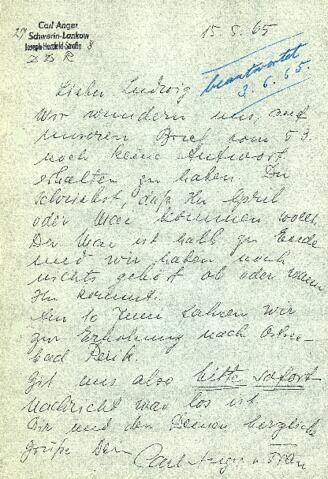 Carl Anger
Schwerin-Lankow
Joseph-Herzfeld-Straße 8
27 DDR
15.5.65
beantwortet
3.6.65.
Lieber Ludwig
Wir wundern uns, auf
unseren Brief vom 5 3
noch keine Antwort
erhalten zu haben. Du
schriebst, daß Ihr April
oder Mai kommen wollt.
Der Mai ist halb zu Ende
und wir haben noch
nichts gehört ob oder wann
Ihr kommt.
Am 10 Juni fahren wir
zur Erholung nach Ostsee-
bad
Gib uns also bitte sofort
Nachricht was los ist
Dir und den Deinen herzliche
Grüße Dein
Carl Anger u Frau